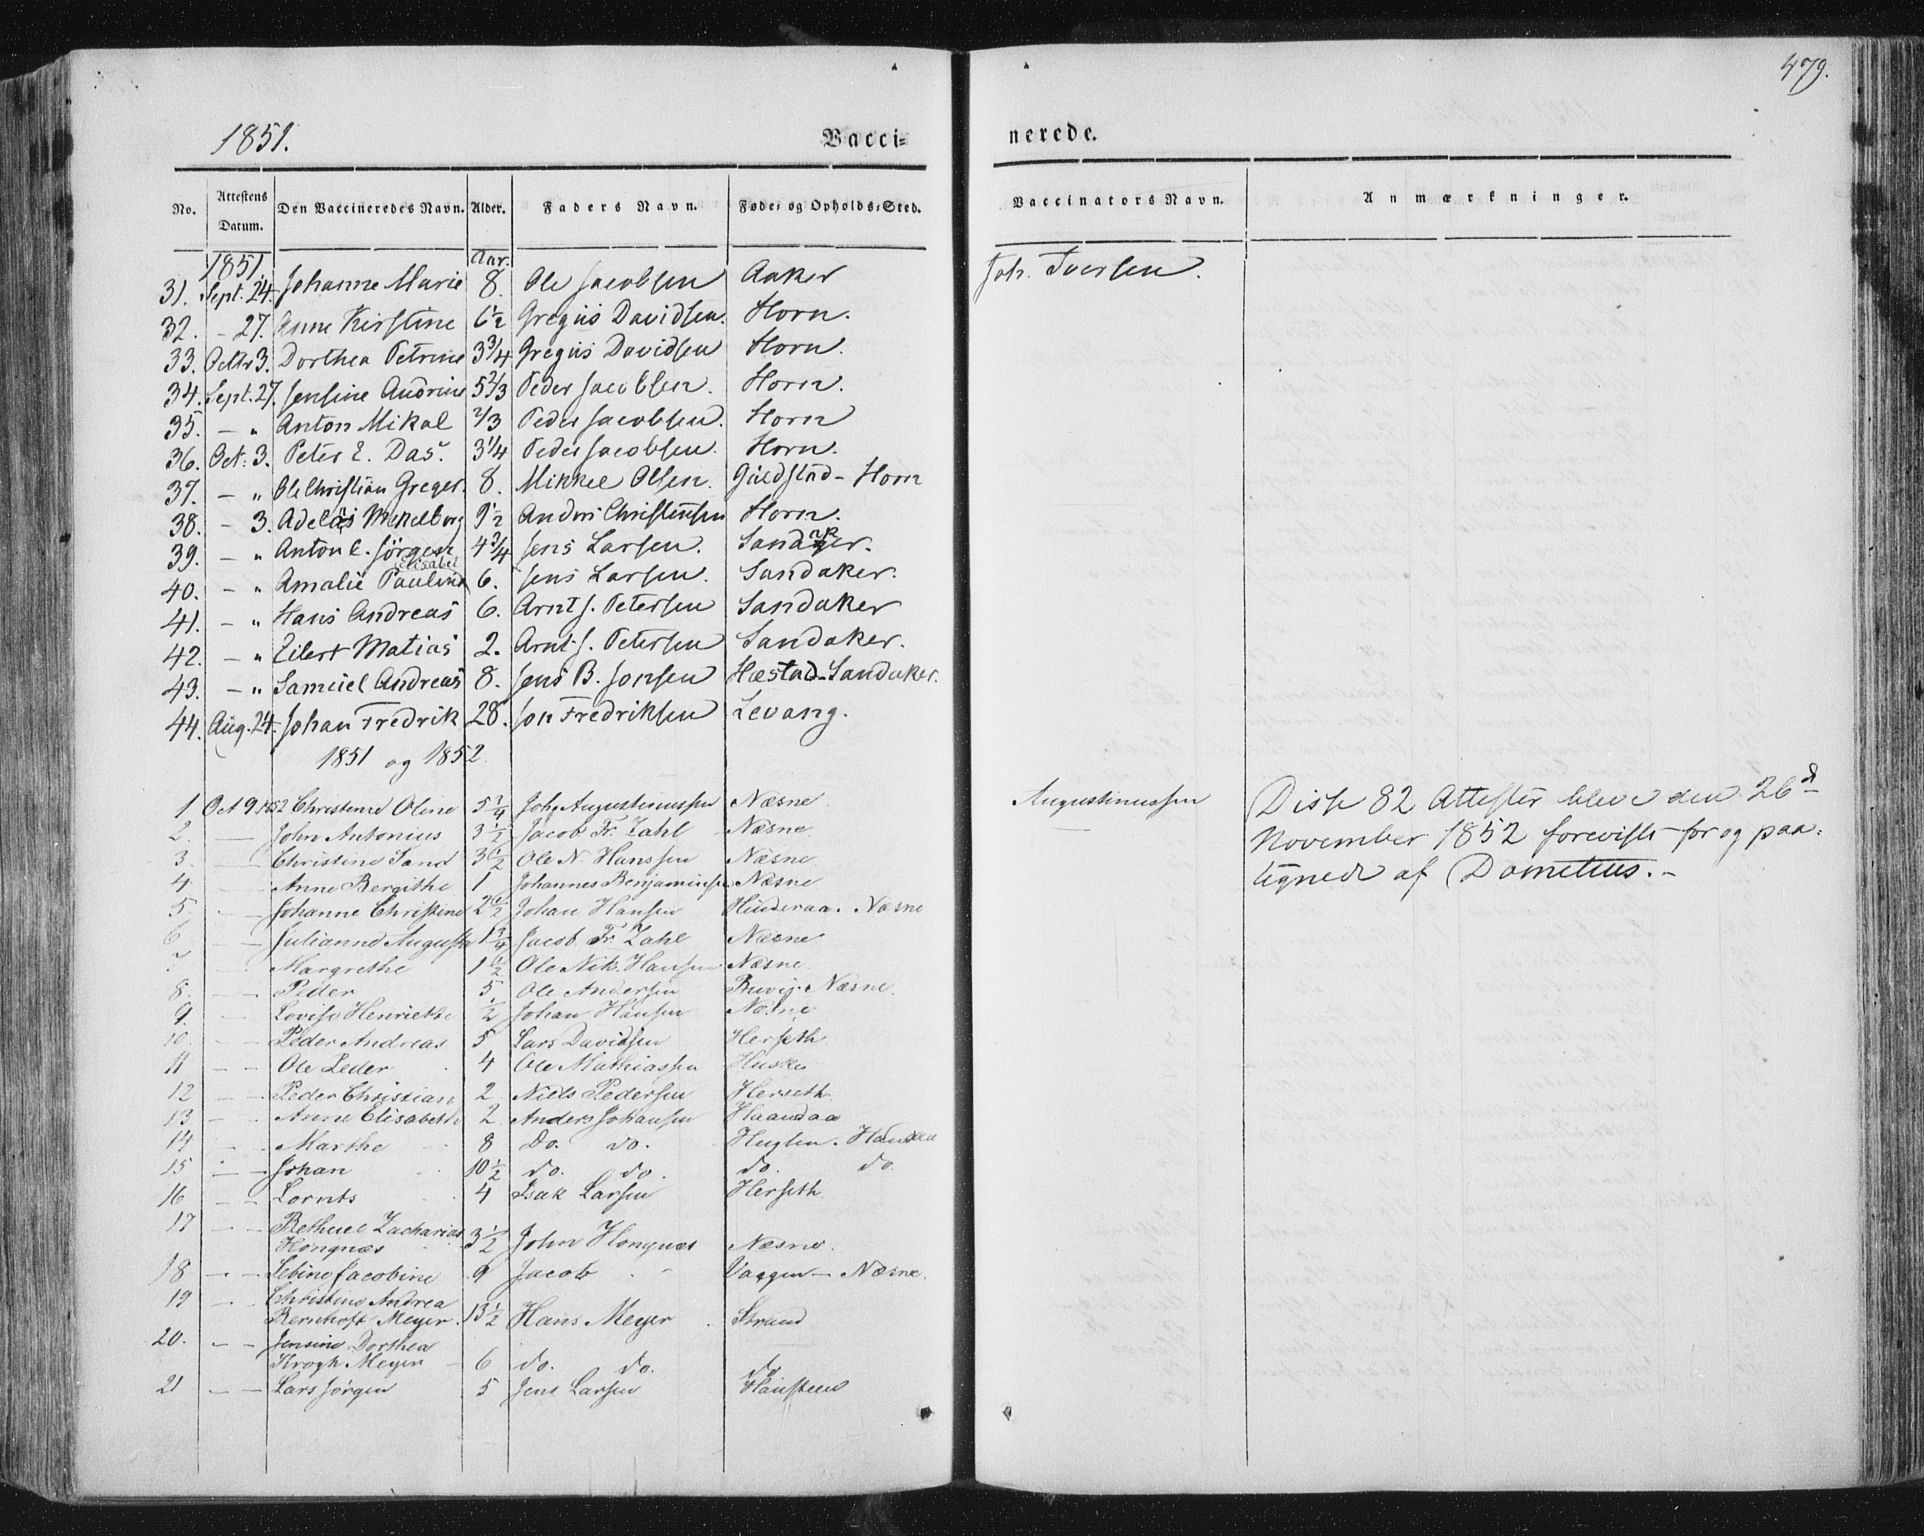 479.
1851.
Vacci=
nerede.
No. Attestens Datum. Den Vaccineredes Navn. Alder. Faders Navn. Føde- og Opholds-Sted. Vaccinators Navn. Anmærkninger.
1851 Aar.
31. Sept. 24. Johanne Marie 8. Ole Jacobsen Aaker Joh. Iversen.
32. - 27. Anne Kirstine 6½ Gregus Davidsen. Horn.
33. Octbr 3. Dorthea Petrine 3¾ Gregus Davidsen Horn.
34. Sept. 27. Jensine Andrine 5⅔ Peder Jacobsen. Horn.
35. - " Anton Mikal ⅔ Peder Jacobsen. Horn
36. Oct: 3. Peter E. Das. 3¼ Peder Jacobsen. Horn.
37. - " Ole Christian Greger. 8. Mikkel Olsen. Guldstad - Horn
38. - 3. Mekelborg 9½ Anders Christensen Horn.
39. - " Anton C. Jörgen 4¾ Jens Larsen. Sandaker.
40. - " Amalie Pauline Elisabet 6. Jens Larsen. Sandaker.
41. - " Hans Andreas 6. Arnt J. Petersen Sandaker
42. - " Eilert Matias 2. Arnt J. Petersen Sandaker.
43. - " Samuel Andreas 8. Jens B. Jonsen Hæstad - Sandaker.
44. Aug. 24. Johan Fredrik 28. Jon Fredriksen Levang.
1851 og 1852
1 Oct 9 1852 Christense Oline 5¾ Joh. Augustinussen Næsne. Augustinussen Disse 82 Attester bleve den 26d
2 John Antonius 3½ Jacob Fr. Zahl Næsne. November 1852 foreviste for og paa=
3. Christine Sand 3½ Ole N. Hanssen Næsne. tegnede af Dometius. -
4. Anne Bergithe 1 Johannes Benjaminsen Næsne
5 Johanne Christine 2½ Johan Hansen Hinderaa. Næsne
6 Julianne Augusta 1¾ Jacob Fr. Zahl Næsne
7 Margrethe 1½ Ole Nik. Hansen Næsne.
8. Peder 5 Ole Andersen Næsne.
9. Lovise Henriethe ½ Johan Hansen Næsne
10. Peder Andreas 5 Lars Davidsen Herseth
11 Ole Peder 4 Ole Mathiassen Husby
12 Peder Christian 2 Niels Pedersen Herseth
13 Anne Elisabeth 2 Anders Johansen Haandaa
14 Marthe 8 Do. do. Huglen.
15 Johan 10½ do. do. do. do.
16 Lornts 4 Isak Larsen Herseth
17 Bethuel Zacharias
Hongnæs 3½ John Hongnæs Næsne.
18 Sebine Jacobine 9 Jacob Vaagen - Næsne.
19 Christine Andrea
Bernhoft Meyer. 13½ Hans Meyer Strand
20. Jensine Dorthea
Krogh Meyer 6 do. do. do
21 Lars Jørgen 5 Jens Larsen Hansteen